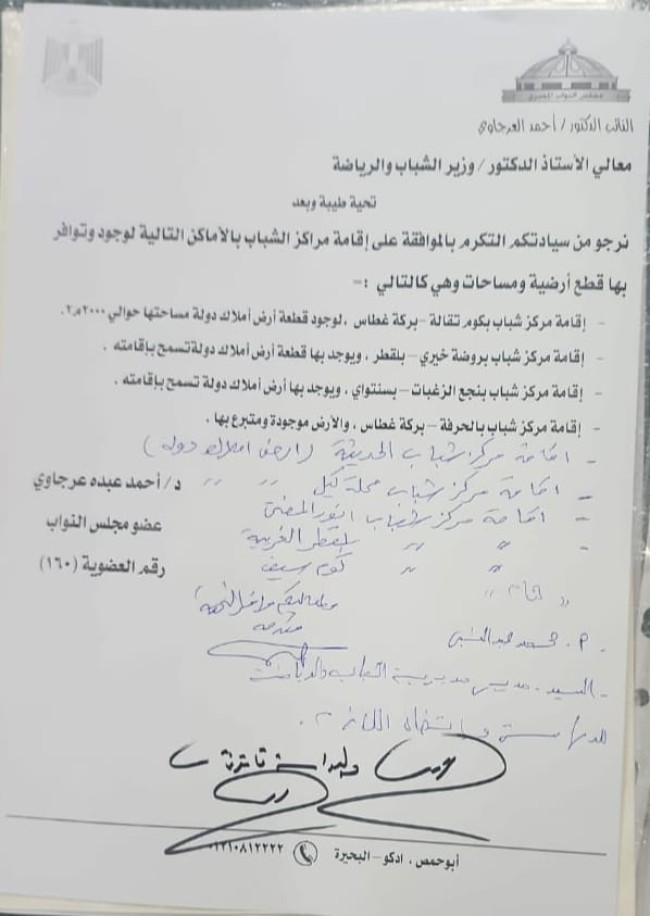 مجلس النواب المصري
النائب الدكتور / أحمد العرجاوي
معالي الأستاذ الدكتور / وزير الشباب والرياضة
تحية طيبة وبعد
نرجو من سيادتكم التكرم بالموافقة على إقامة مراكز الشباب بالأماكن التالية لوجود وتوافر
بها قطع أرضية ومساحات وهي كالتالي :-
- إقامة مركز شباب بكوم تقالة - بركة غطاس ، لوجود قطعة أرض أملاك دولة مساحتها حوالي ٢٠٠٠م٢.
- إقامة مركز شباب بروضة خيري - بلقطر ، ويوجد بها قطعة أرض أملاك دولة تسمح بإقامته .
- إقامة مركز شباب بنجع الزغبات - بسنتواي ، ويوجد بها أرض أملاك دولة تسمح بإقامته .
- إقامة مركز شباب بالحرفة - بركة غطاس ، والأرض موجودة ومتبرع بها .
- اقامة مركز شباب الحديثة (ارض املاك دولة)
- اقامة مركز شباب محلة كيل " "
- اقامة مركز شباب انور المفتى
- " " بلقطر الغربية
" " كوم سيف
د / أحمد عبده عرجاوي
عضو مجلس النواب
رقم العضوية (١٦٠)
م. محمد عبد
- السيد. مدير مديرية الشباب والرياضة
للدراسة واتخاذ اللازم.
أبوحمص ، ادكو - البحيرة